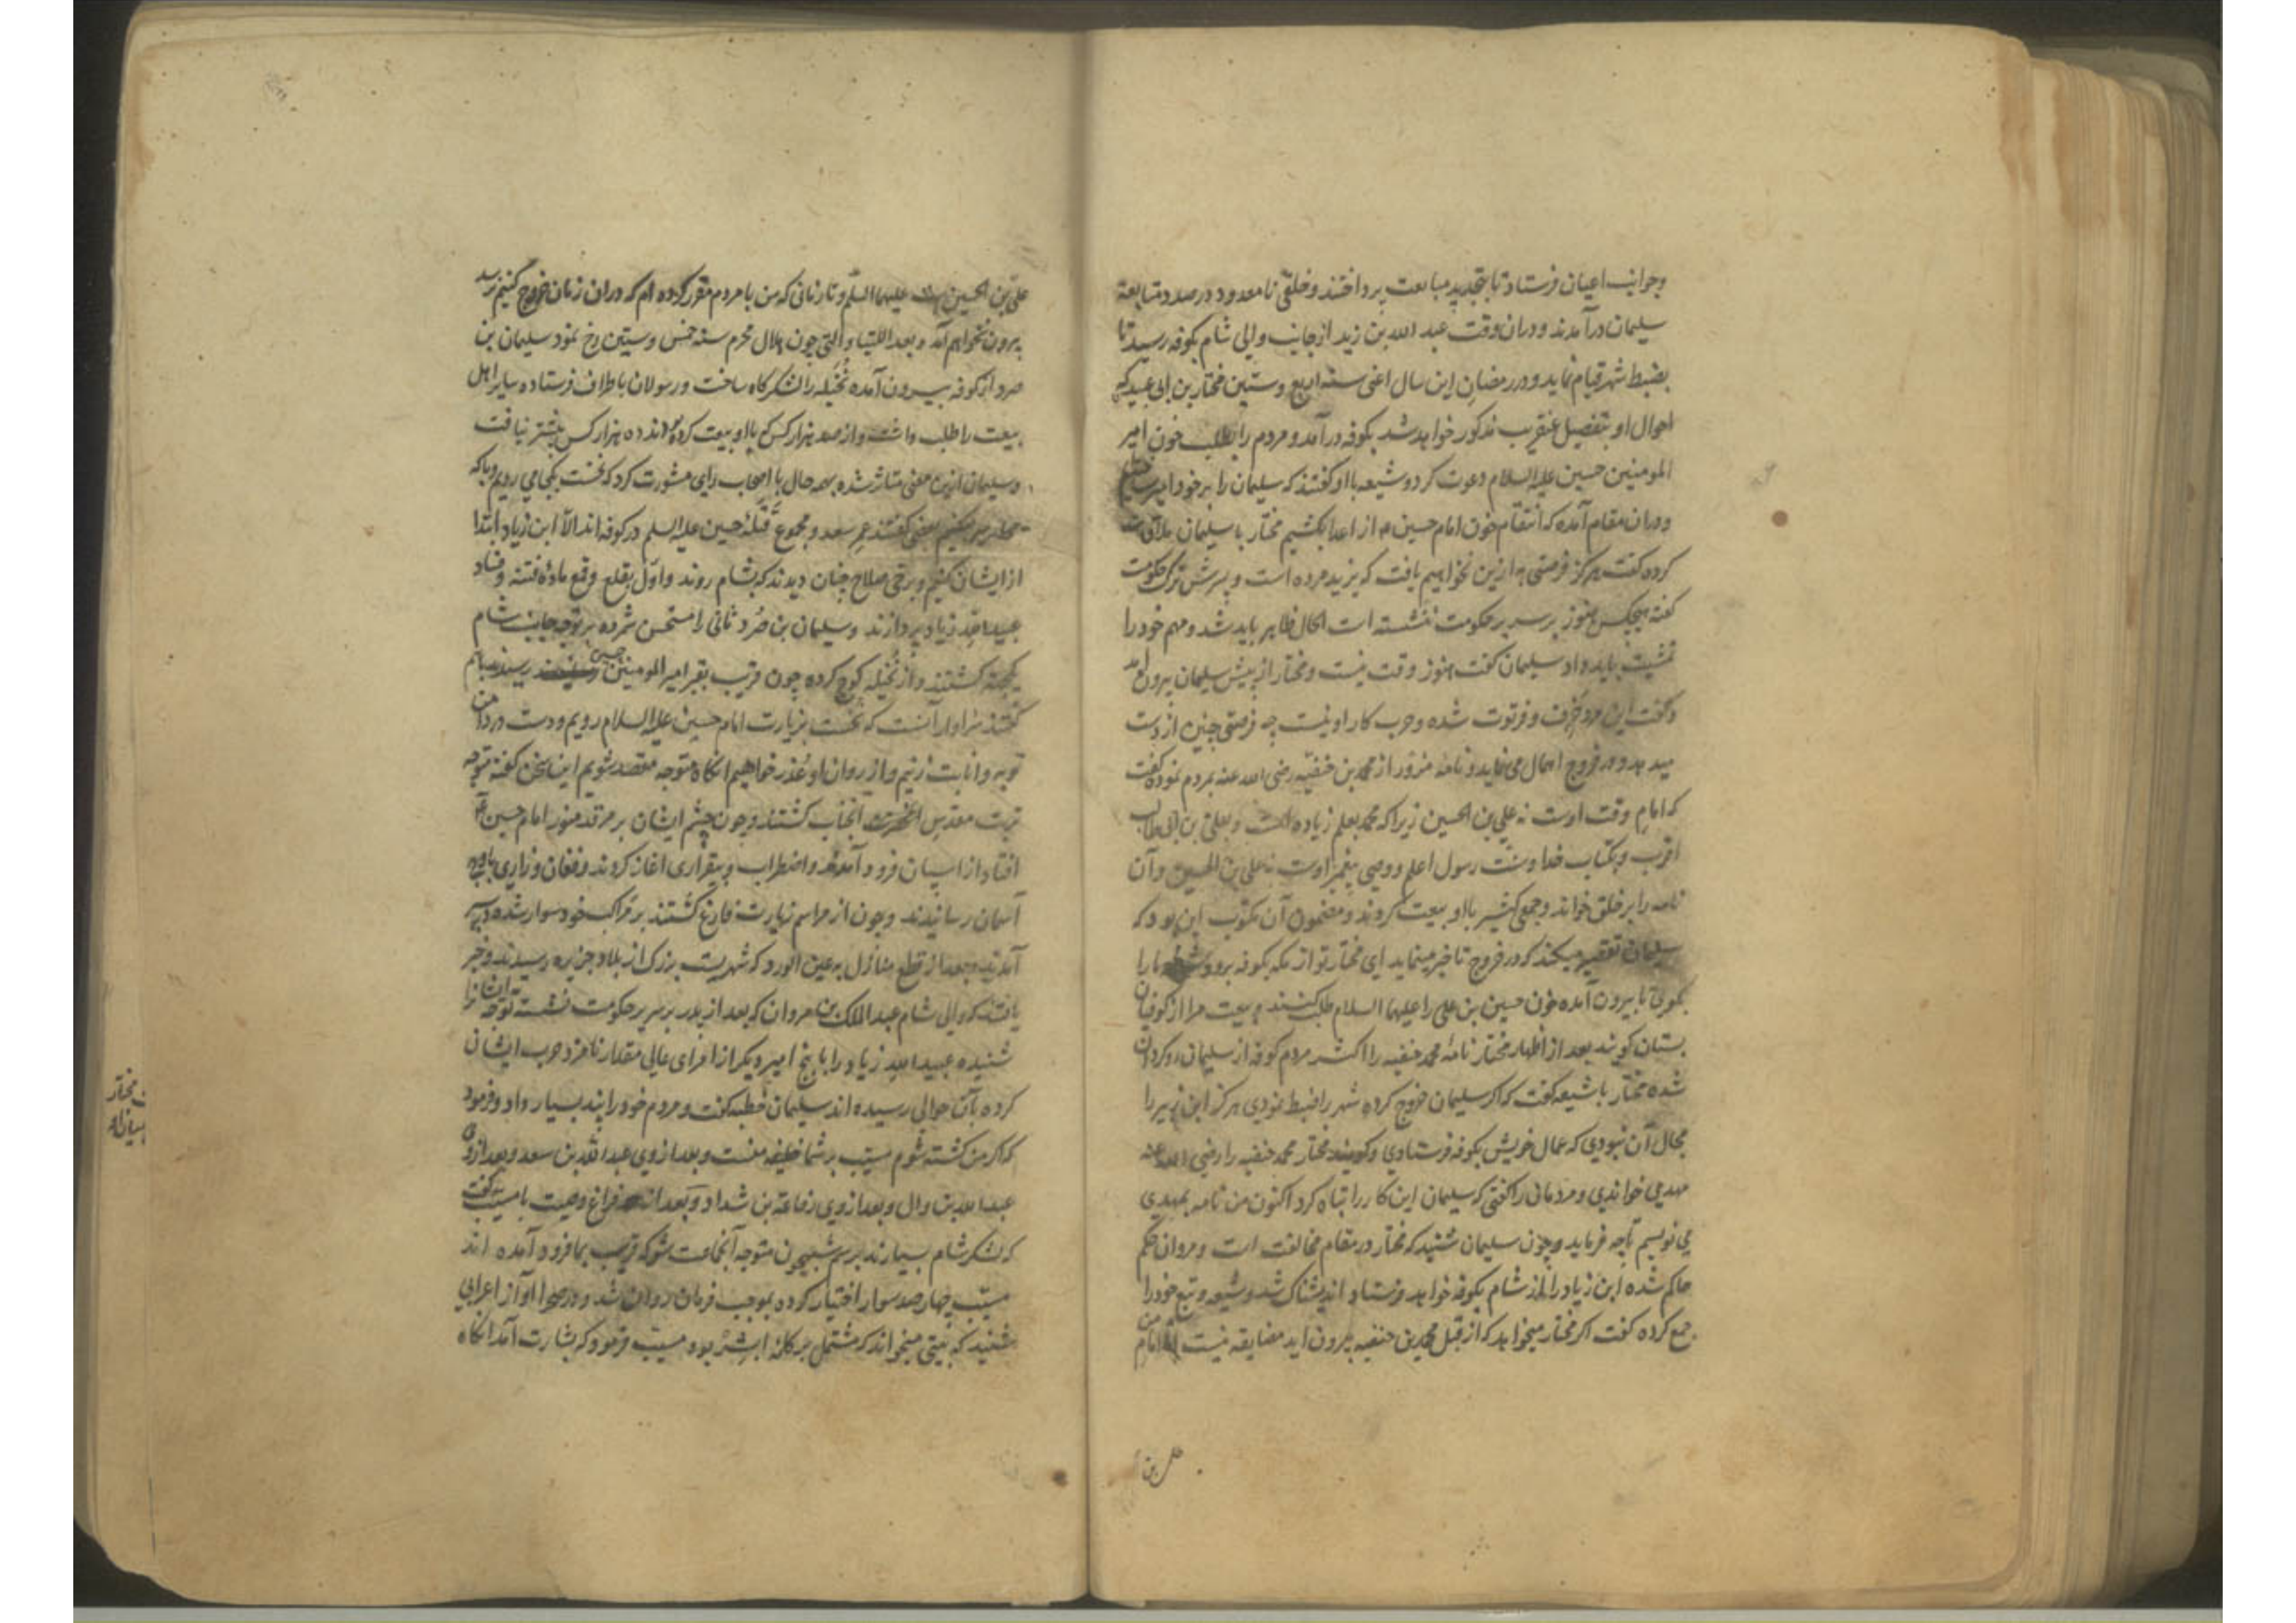 وجوانب اعیان فرستاد تا بتجدید مبایعت پرداختند و خلقی نامعدود در صدد متابعة
سلیمان درآمدند و دران وقت عبد الله بن زید از جانب والی شام بکوفه رسید تا
بضبط شهر قیام نماید و در رمضان این سال اعنی سنه اربع و ستین مختار بن ابی عبید که
احوال او بتفصیل عنقریب مذکور خواهد شد بکوفه درآمد و مردم را بطلب خون امیر
المومنین حسین علیه السلام دعوت کرد و شیعه با او گفتند که سلیمان را بر خود امیر ساختیم
و دران مقام آمده که انتقام خون امام حسین از اعدا بکشیم مختار با سلیمان ملاقات
کرده گفت هرگز فرصتی به ازین نخواهیم یافت که یزید مرده است و پسرش ترک حکومت
گفته هیچکس هنوز بر سریر حکومت ننشسته است الحال ظاهر باید شد و مهم خود را
تمشیت باید داد سلیمان گفت هنوز وقت نیست و مختار از پیش سلیمان بیرون آمد
و گفت این مرد خرف و فرتوت شده و حرب کار او نیست چه فرصتی چنین از دست
میدهد و در خروج اهمال می نماید و نامه مزور از محمد بن حنفیه رضی الله عنه بمردم نموده گفت
که امام وقت اوست نه علی بن الحسین زیرا که محمد بعلم زیاده است و بعلی بن ابی طالب
اقرب و بکتاب خدا و سنت رسول اعلم و وصی پیغمبر اوست نه علی بن الحسین و آن
نامه را بر خلق خواند و جمعی کثیر با او بیعت کردند و مضمون آن مکتوب این بود که
سلیمان تقصیر میکند که در خروج تاخیر مینماید ای مختار تو از مکه بکوفه برو و شیعه ما را
بگوی تا بیرون آمده خون حسین بن علی را علیهما السلام طلب کنند و بیعت مرا از کوفیان
بستان گویند بعد از اظهار مختار نامه محمد حنفیه را اکثر مردم کوفه از سلیمان روگردان
شده مختار با شیعه گفت که اگر سلیمان خروج کرده شهر را ضبط نمودی هرگز ابن زبیر را
مجال آن نبودی که عمال خویش بکوفه فرستادی و گویند مختار محمد حنفیه را رضی الله عنه
مهدی خواندی و مردمان را گفتی که سلیمان این کار را تباه کرد اکنون من نامه بمهدی
می نویسم تا چه فرماید و چون سلیمان شنید که مختار در مقام مخالفت است و مروان حکم
حاکم شده ابن زیاد را از شام بکوفه خواهد فرستاد اندیشناک شد و شیعه و تبع خود را
جمع کرده گفت اگر مختار میخواهد که از قبل محمد بن حنفیه بیرون اید مضایقه نیست امام من
علی بن
علی بن الحسین است علیهما السلم و تا زمانی که من با مردم مقرر کرده ام که دران زمان خروج کنیم نرسد
بیرون نخواهم آمد و بعد اللتیا و التی چون هلال محرم سنه خمس و ستین رخ نمود سلیمان بن
صرد از کوفه بیرون آمده نخیله را لشکرگاه ساخت و رسولان باطراف فرستاده سایر اهل
بیعت را طلب داشت و از صد هزار کس که با او بیعت کرده بودند ده هزار کس بیشتر نیافت
و سلیمان ازین معنی متاثر شده بهمه حال با اصحاب رای مشورت کرد که نخست بکجا می رویم و با که
حرب میکنیم بعضی گفتند عمر سعد و مجموع قتلهٔ حسین علیه السلم در کوفه اند الا ابن زیاد ابتدا
از ایشان کنیم و برخی صلاح چنان دیدند که بشام روند و اول بقلع و قمع مادهٔ فتنه و فساد
عبید الله زیاد پردازند و سلیمان بن صرد ثانی را مستحسن شمرده بر توجه جانب شام
یکجهة گشتند و از نخیله کوچ کرده چون قریب بقبر امیر المومنین حسین رسیدند با هم
گفتند سزاوار آنست که نخست بزیارت امام حسین علیه السلام رویم و دست در دامن
توبه و انابت زنیم و از روان او عذر خواهیم انگاه متوجه مقصد شویم این سخن گفته متوجه
تربت مقدس آنجناب گشتند و چون چشم ایشان بر مرقد منور امام حسین
افتاد از اسپان فرود آمدند و اضطراب و بیقراری اغاز کردند و فغان و زاری باوج
آسمان رسانیدند و چون از مراسم زیارت فارغ گشتند بر مراکب خود سوار شده در سیر
آمدند و بعد از قطع منازل به عین الورد که شهریست بزرگ از بلاد جزیره رسیدند و خبر
یافتند که والی شام عبد الملک بن مروان که بعد از پدر بر سریر حکومت نشسته توجه ایشانرا
شنیده عبید الله زیاد را با پنج امیر دیگر از امرای عالی مقدار نامزد حرب ایشان
کرده بآن حوالی رسیده اند سلیمان خطبه گفت و مردم خود را پند بسیار داد و فرمود
که اگر من کشته شوم مسیب بر شما خلیفه منست و بعد از وی عبد الله بن سعد و بعد از وی
عبد الله بن وال و بعد از وی رفاعة بن شداد و بعد از فراغ وصیت با مسیب گفت
که لشکر شام بسیارند برسم شبیخون متوجه آنجماعت شو که قریب بما فرود آمده اند
مسیب چهار صد سوار اختیار کرده بموجب فرمان روان شد و در صحرا آواز اعرابی
شنید که بیتی میخواند که مشتمل بر کلمه ابشر بود مسیب فرمود که بشارت آمد انگاه
مختار